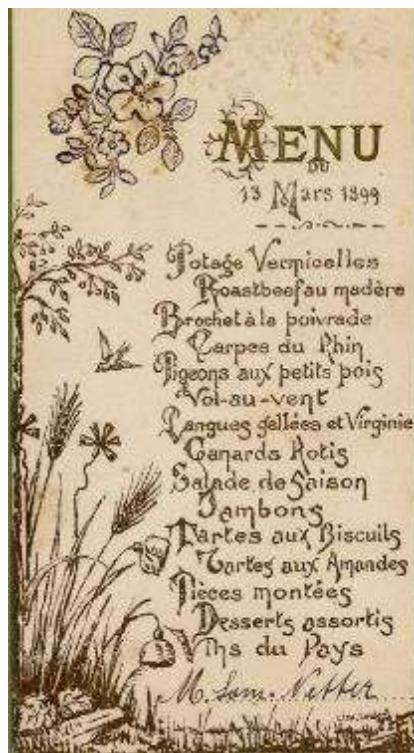 MENU
DU
13 Mars 1899
Potage Vermicelles
Roastbeef au madère
Brochet à la poivrade
Carpes du Rhin
Pigeons aux petits pois
Vol-au-vent
Langues gellées et Virginie
Canards Rotis
Salade de Saison
Jambons
Tartes aux Biscuits
Tartes aux Amandes
Pièces montées
Desserts assortis
Vins du Pays
M. Sam. Netter